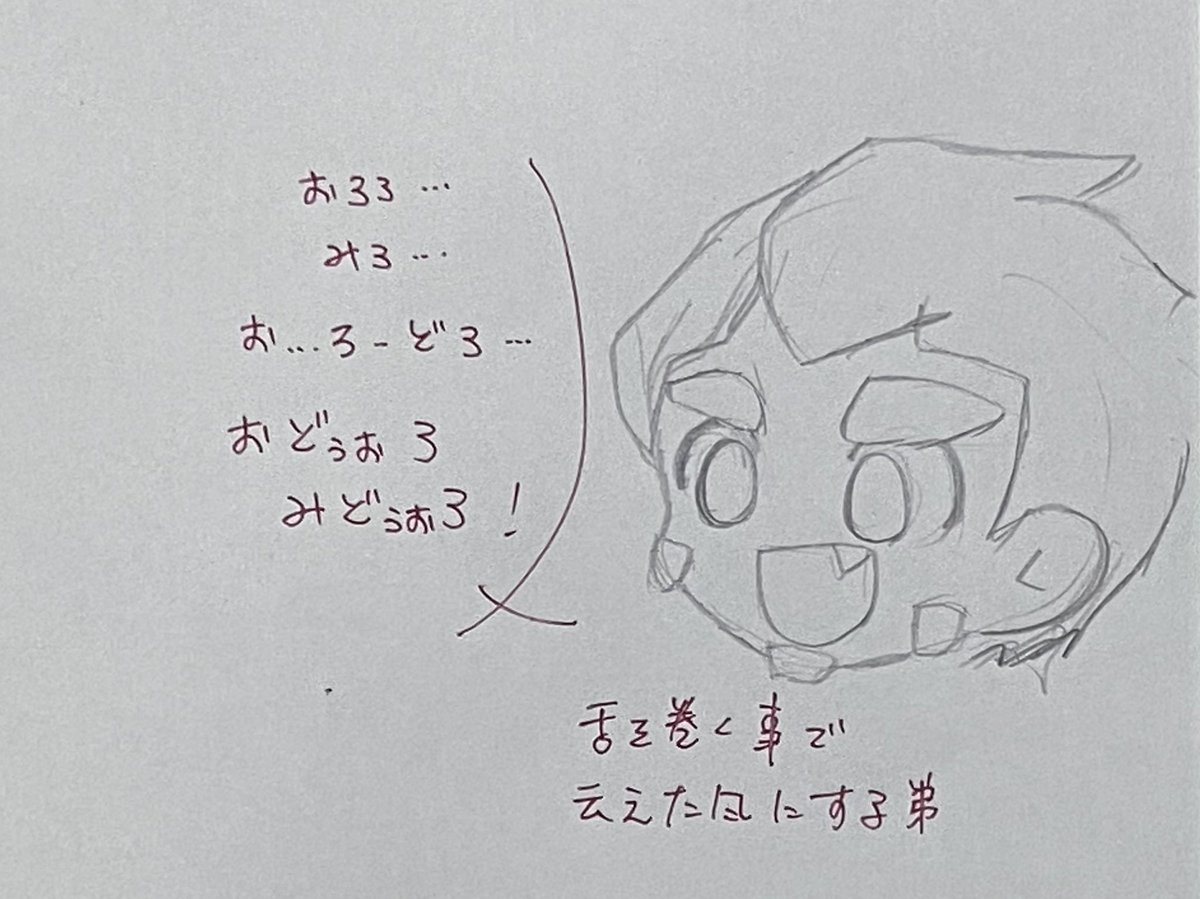 おろろ…
みろ…
お…ろーどろ…
おどぅおろ
みどぅおろ!
舌を巻く事で
云えた風にする弟